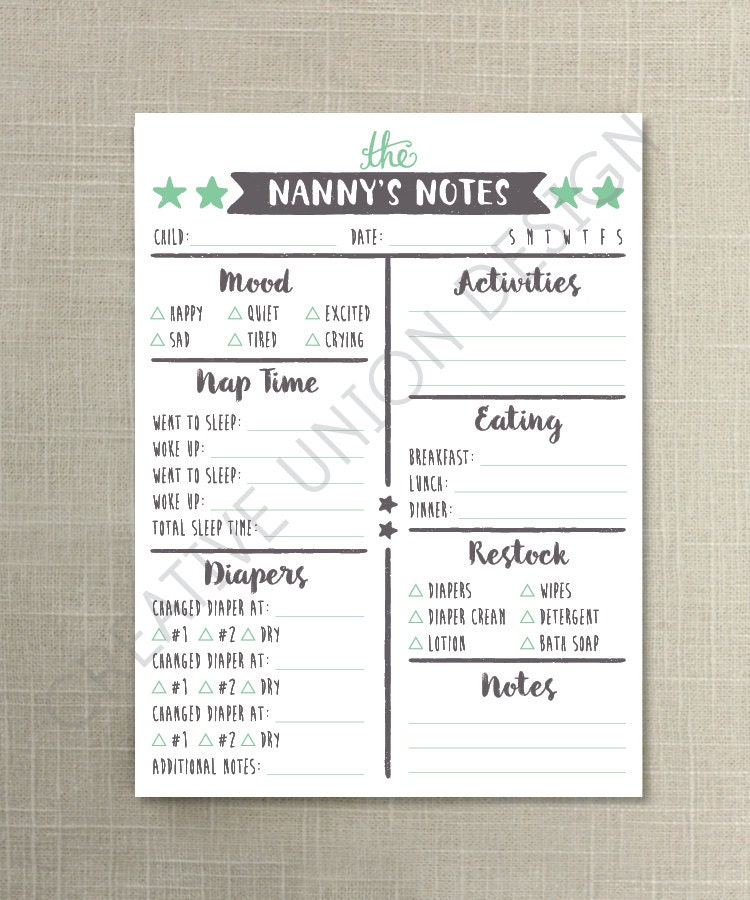 the
NANNY'S NOTES
CHILD: DATE: S M T W T F S
Mood
HAPPY QUIET EXCITED
SAD TIRED CRYING
Nap Time
WENT TO SLEEP:
WOKE UP:
WENT TO SLEEP:
WOKE UP:
TOTAL SLEEP TIME:
Diapers
CHANGED DIAPER AT:
#1 #2 DRY
CHANGED DIAPER AT:
#1 #2 DRY
CHANGED DIAPER AT:
#1 #2 DRY
ADDITIONAL NOTES:
Activities
Eating
BREAKFAST:
LUNCH:
DINNER:
Restock
DIAPERS WIPES
DIAPER CREAM DETERGENT
LOTION BATH SOAP
Notes
CREATIVE UNION DESIGN